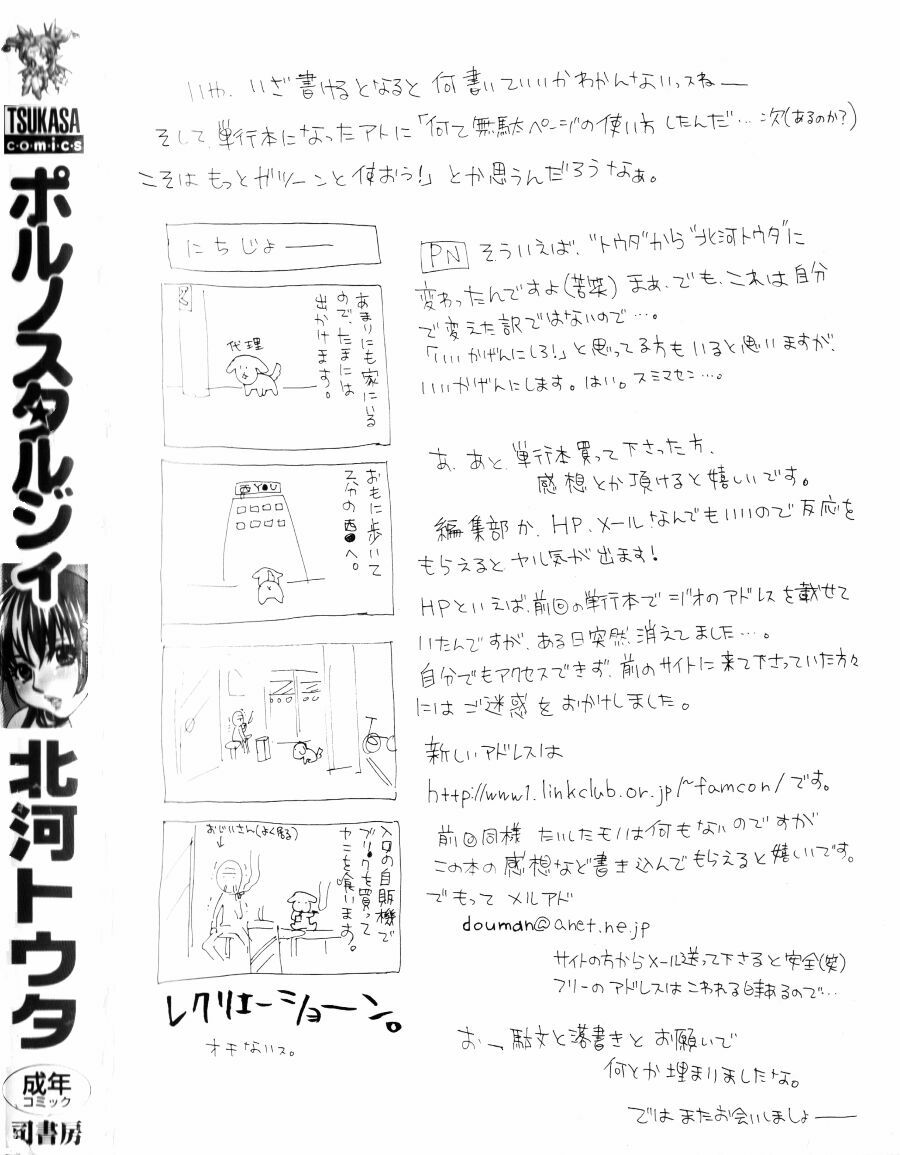 TSUKASA
comics
ポルノスタルジィ
北河トウタ
成年
コミック
司書房
いや、いざ書けるとなると何書いていいかわかんないっスねー
そして単行本になったアトに「何て無駄ページの使い方したんだ…次(あるのか?)
こそは もっとガツーンと使おう!」とか思うんだろうなぁ。
にちじょー
あまりにも家にいる
ので、たまには
出かけます。
代理
おもに歩いて
2分の西●へ。
西YOU
おじいさん(よく居る)
入口の自販機で
ブリ●クを買って
ヤニを喰います。
レクリエーショーン。
オチないス。
PN そういえば、"トウタ"から"北河トウタ"に
変わったんですよ(苦笑) まぁ、でも、これは自分
で変えた訳ではないので…。
「いいかげんにしろ!」と思ってる方もいると思いますが、
いいかげんにします。はい。スミマセン…。
あ、あと、単行本買って下さった方、
感想とか頂けると嬉しいです。
編集部か、HP、メールなんでもいいので反応を
もらえるとヤル気が出ます!
HPといえば、前回の単行本でジオのアドレスを載せて
いたんですが、ある日突然消えてました…。
自分でもアクセスできず、前のサイトに来て下さっていた方々
にはご迷惑をおかけしました。
新しいアドレスは
http://www1.linkclub.or.jp/~famcon/です。
前回同様 たいしたモノは何もないのですが
この本の感想など書き込んでもらえると嬉しいです。
でもって メルアド
douman@anet.ne.jp
サイトの方からメール送って下さると安全(笑)
フリーのアドレスはこわれる時あるので…
おー、駄文と落書きとお願いで
何とか埋まりましたな。
ではまたお会いしましょー